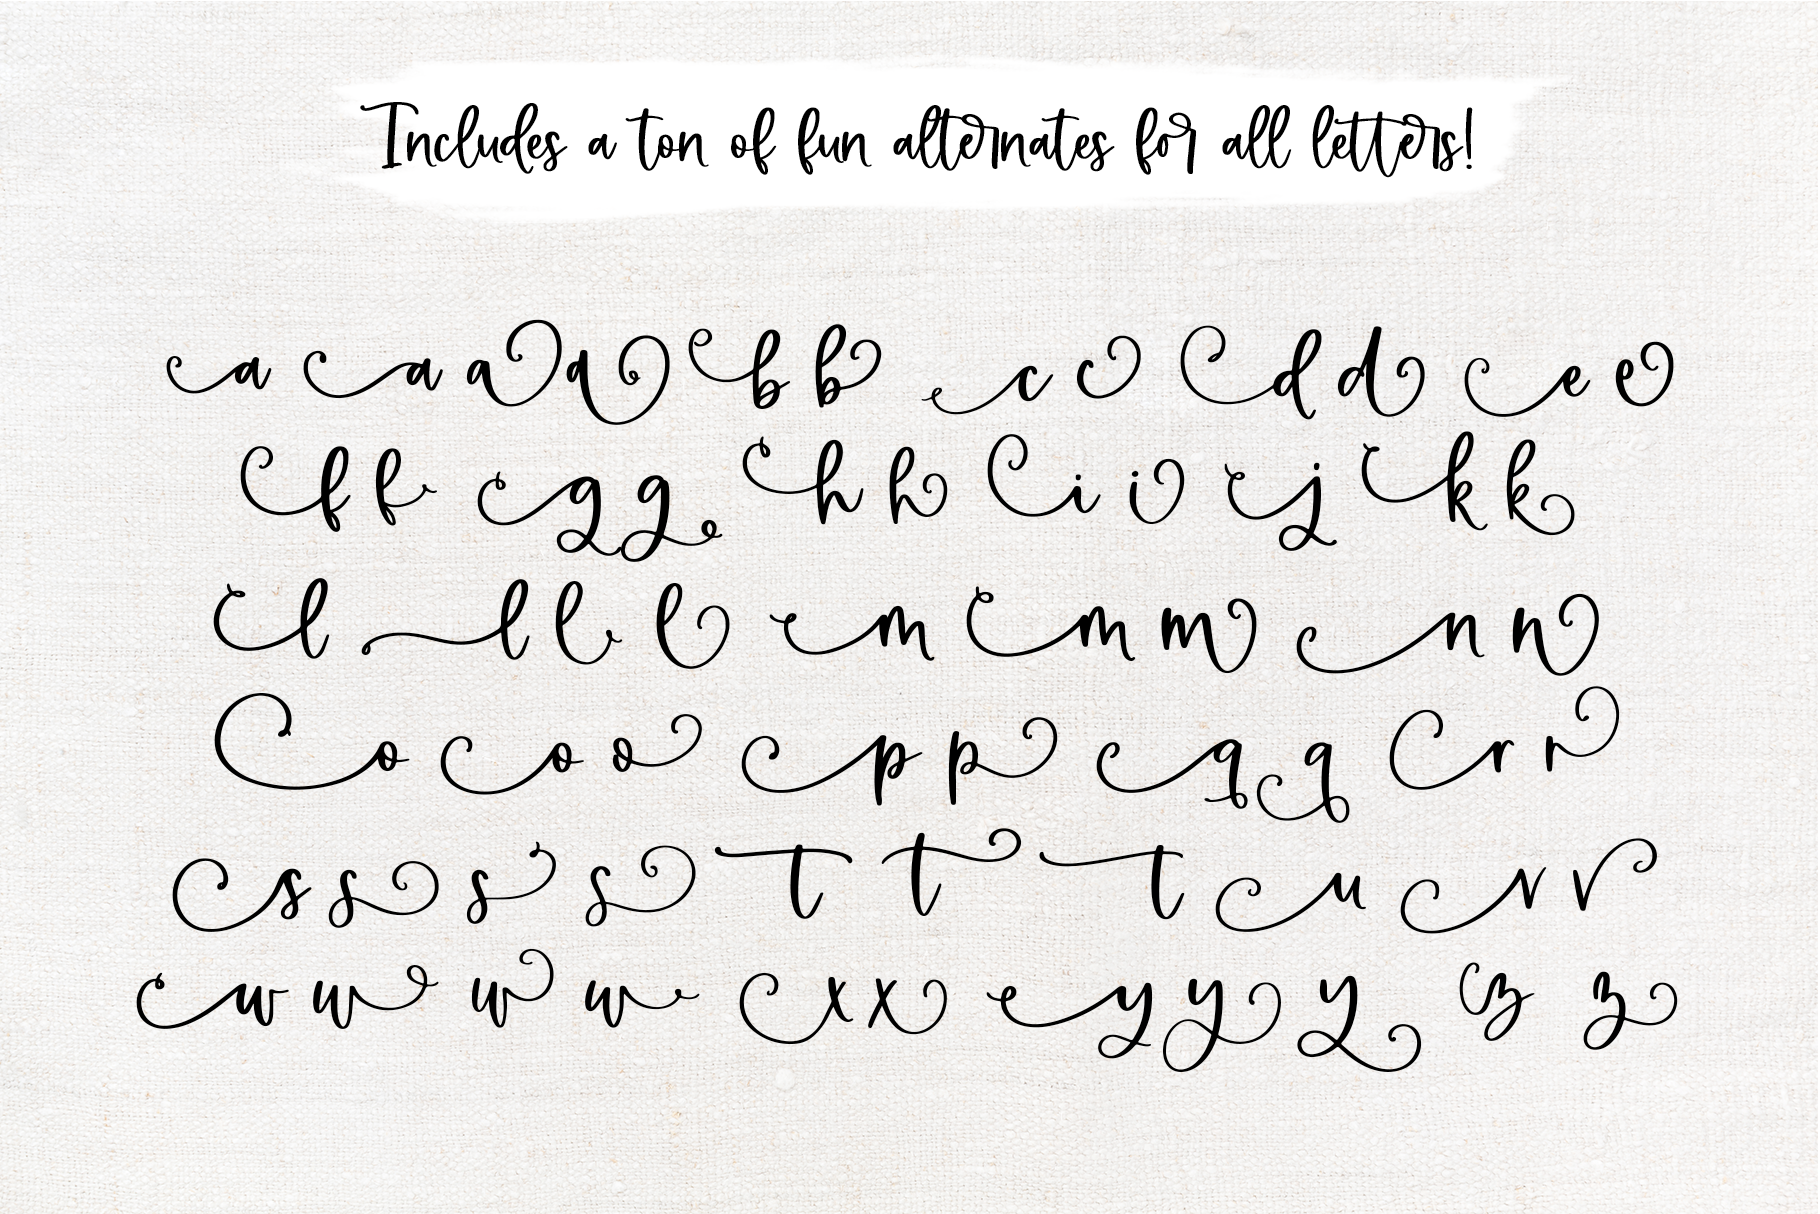 Includes a ton of fun alternates for all letters!
a a a a b b c c d d e e
f f g g h h i i j k k
l l l l m m m n n
o o o p p q q r r
s s s s t t t u v v
w w w w x x y y y z z